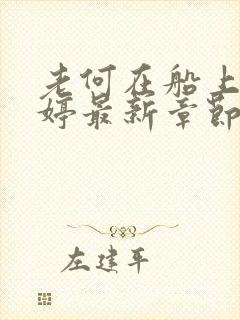 老何在船上
婷最新章节
左建平